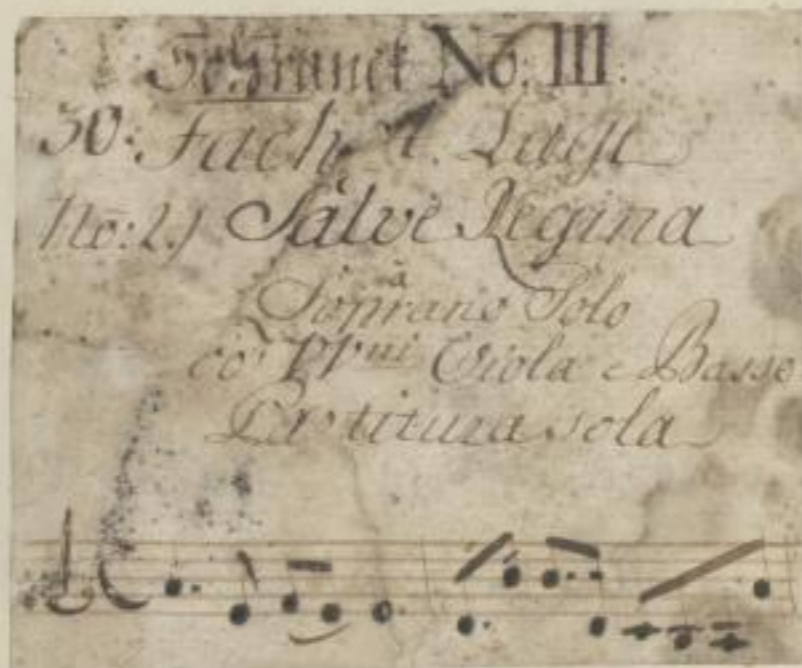 Schranck No: III.
30: Fach 1. Lage
No: 2.) Salve Regina
à
Soprano Solo
co' VV.ni Viola e Basso
Partitura sola